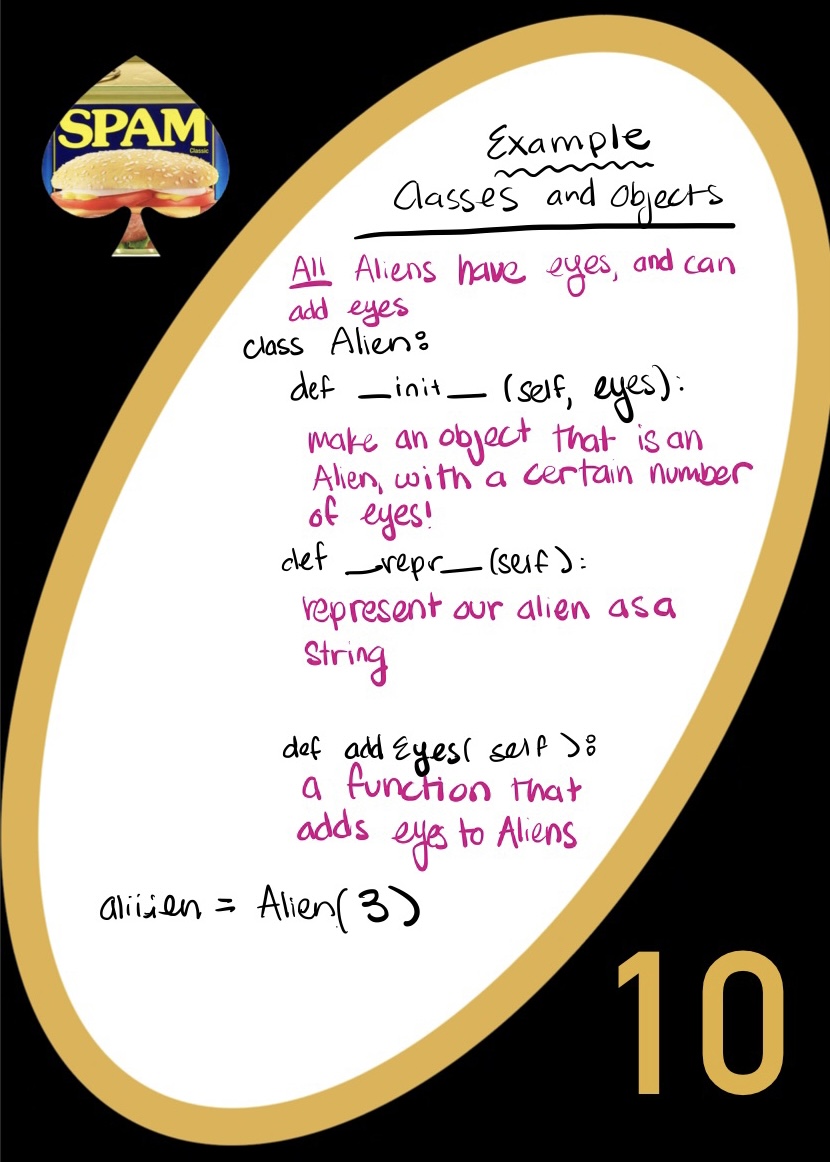 SPAM
Classic
Example
Classes and Objects
All Aliens have eyes, and can
add eyes
class Alien:
def __init__ (self, eyes):
make an object that is an
Alien, with a certain number
of eyes!
def __repr__ (self):
represent our alien as a
String
def addEyes( self ):
a function that
adds eyes to Aliens
aliiien = Alien(3)
10